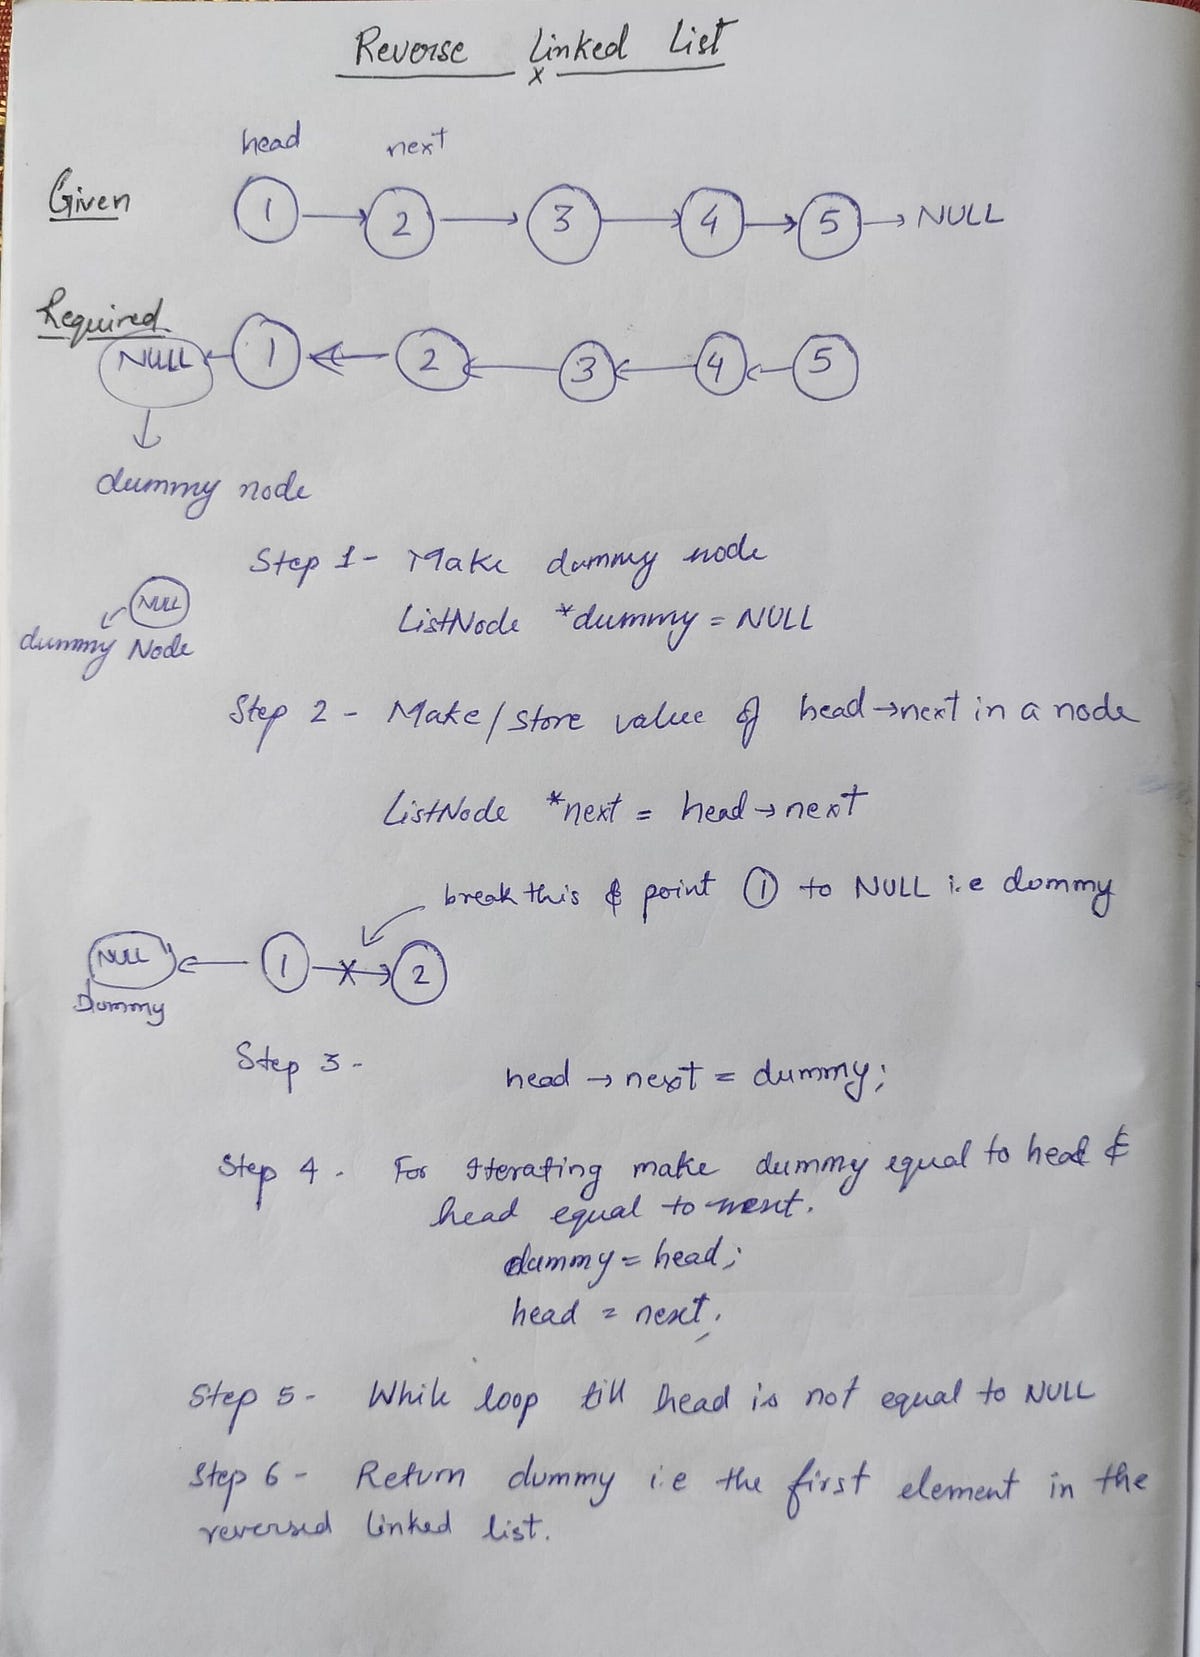 Reverse Linked List
x
head next
Given 1 → 2 → 3 → 4 → 5 → NULL
Required
NULL ← 1 ← 2 ← 3 ← 4 ← 5
↓
dummy node
Step 1 - Make dummy node
NULL
ListNode *dummy = NULL
dummy Node
Step 2 - Make/store value of head → next in a node
ListNode *next = head → next
break this & point ① to NULL i.e dummy
NULL ← 1 -x→ 2
Dummy
Step 3 -
head → next = dummy;
Step 4 - For Iterating make dummy equal to head &
head equal to next.
dummy = head;
head = next;
Step 5 - While loop till head is not equal to NULL
Step 6 - Return dummy i.e the first element in the
reversed linked list.